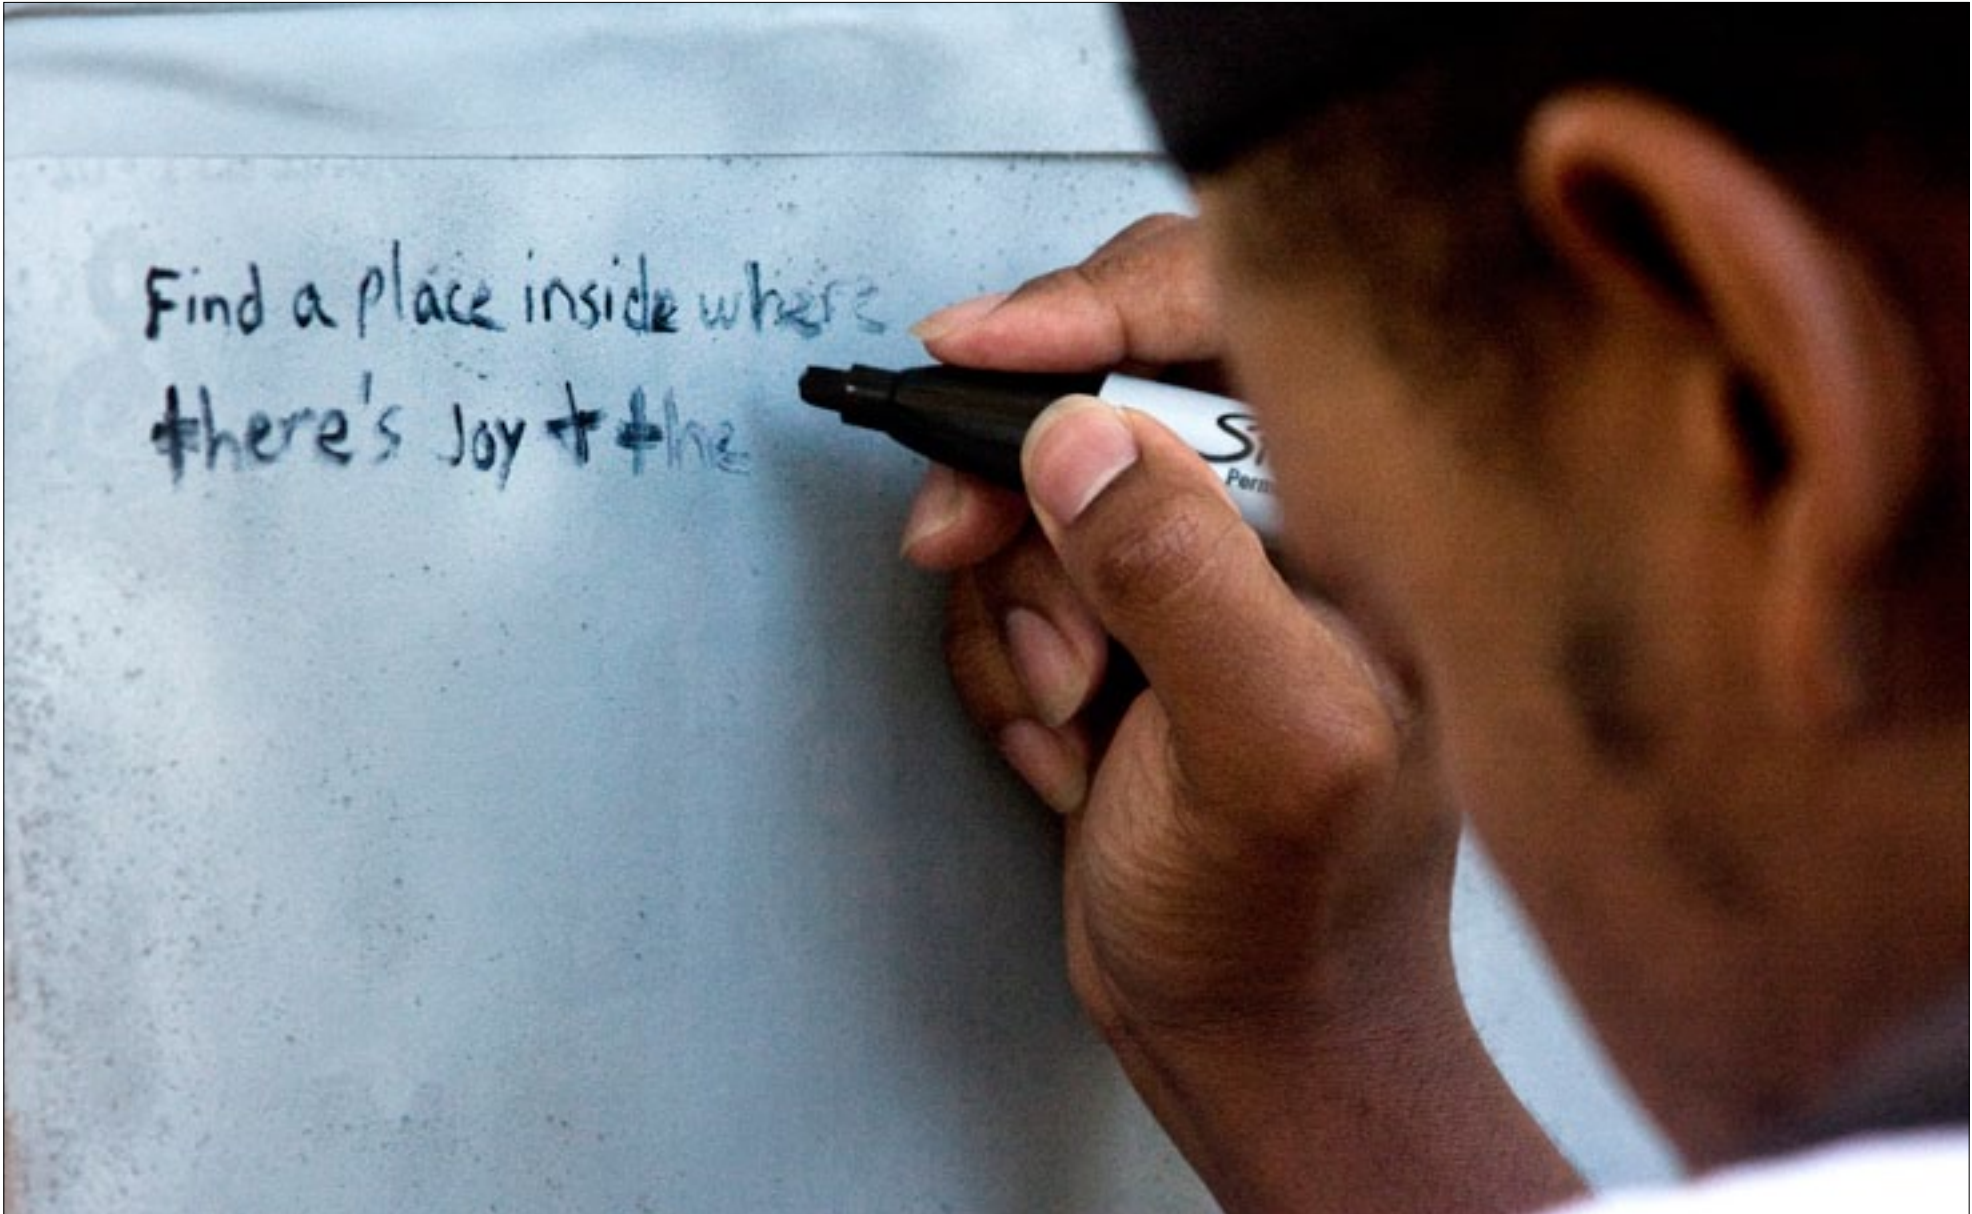 Find a place inside where
there's Joy + the